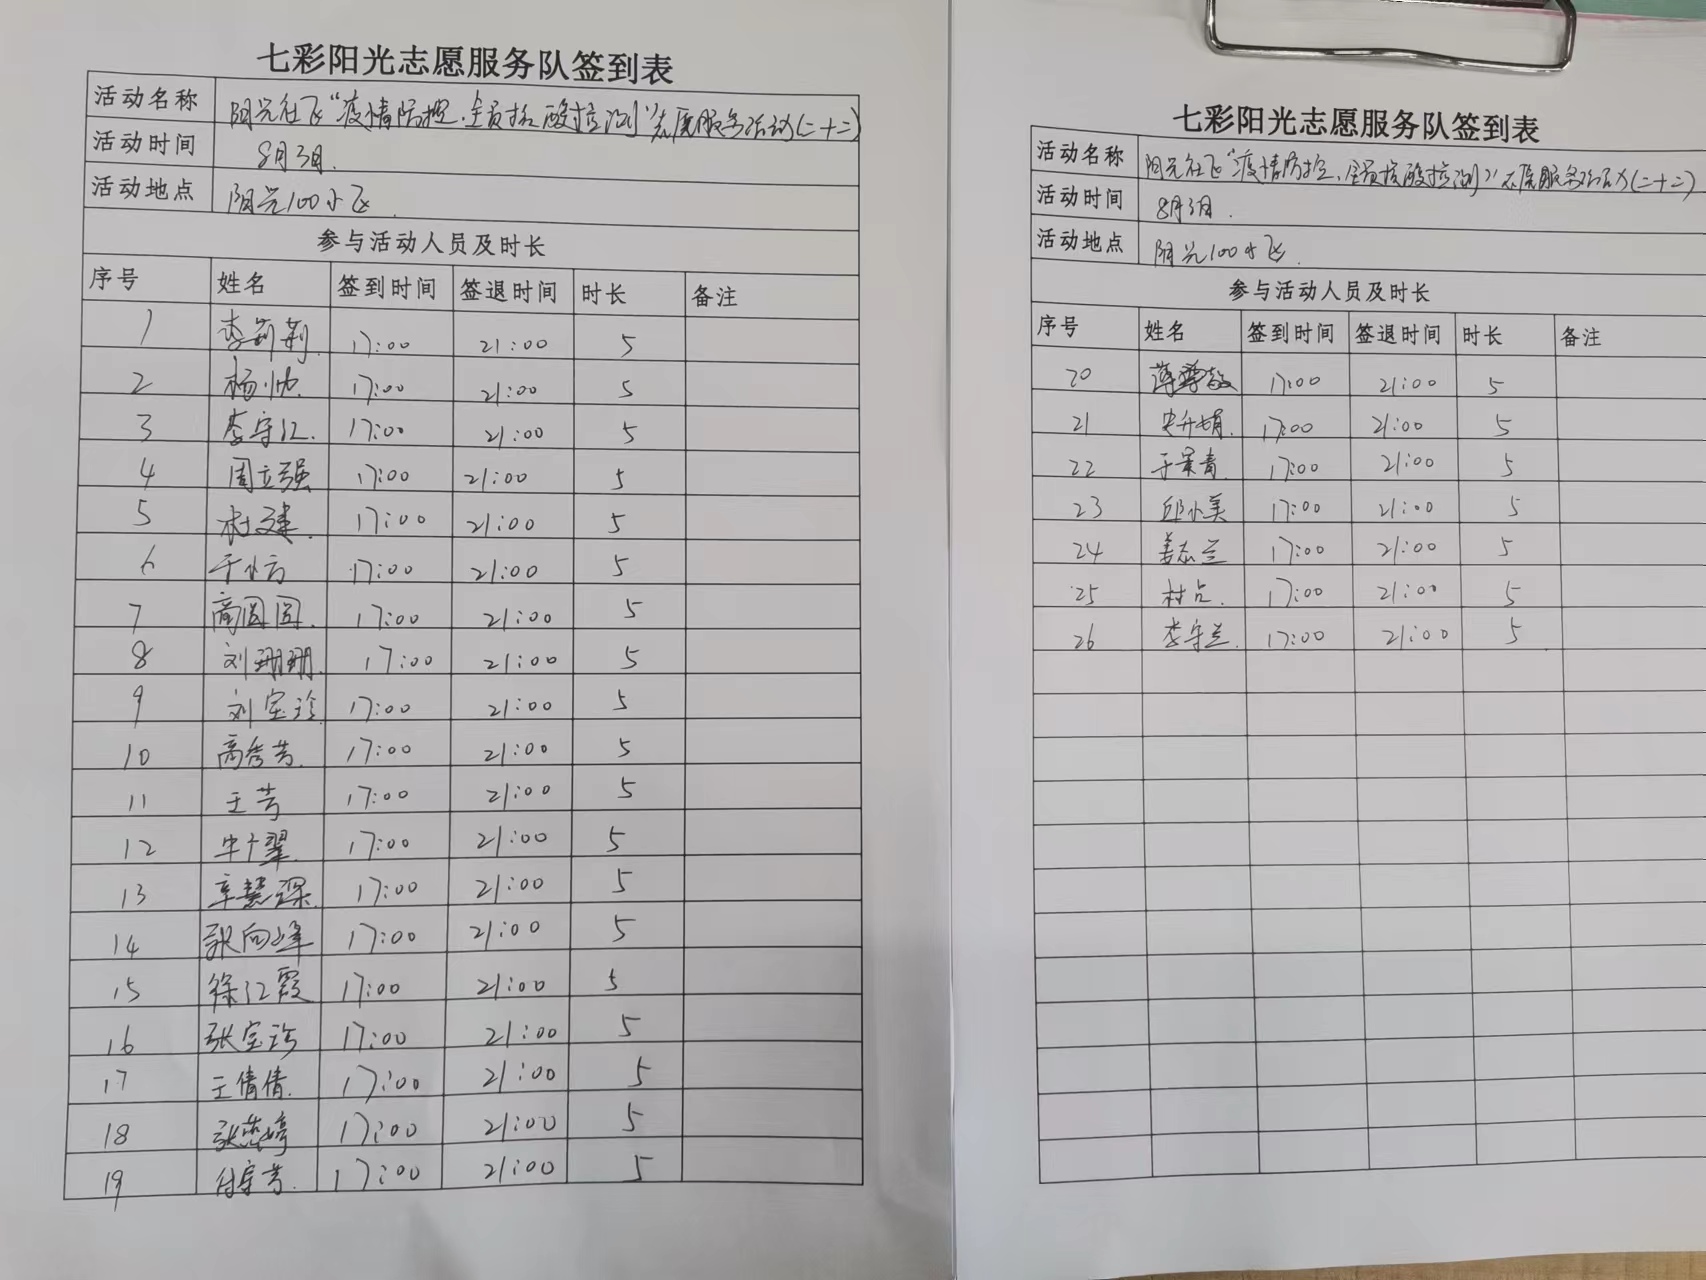 七彩阳光志愿服务队签到表
活动名称 阳光社区“疫情防控、全员核酸检测”志愿服务活动(二十二)
活动时间 8月3日.
活动地点 阳光100小区.
参与活动人员及时长
序号 姓名 签到时间 签退时间 时长 备注
1 李莉莉. 17:00 21:00 5
2 杨帅. 17:00 21:00 5
3 李守江. 17:00 21:00 5
4 周立强 17:00 21:00 5
5 17:00 21:00 5
6 于小方 17:00 21:00 5
7 商圆圆. 17:00 21:00 5
8 刘珊珊. 17:00 21:00 5
9 刘宝珍 17:00 21:00 5
10 高秀芳. 17:00 21:00 5
11 王芳 17:00 21:00 5
12 17:00 21:00 5
13 辛慧深. 17:00 21:00 5
14 张向峰 17:00 21:00 5
15 徐江霞 17:00 21:00 5
16 张宝珍 17:00 21:00 5
17 王倩倩. 17:00 21:00 5
18 张慈婷 17:00 21:00 5
19 付宝芳. 17:00 21:00 5
七彩阳光志愿服务队签到表
活动名称 阳光社区“疫情防控、全员核酸检测”志愿服务活动(二十二)
活动时间 8月3日.
活动地点 阳光100小区.
参与活动人员及时长
序号 姓名 签到时间 签退时间 时长 备注
20 17:00 21:00 5
21 17:00 21:00 5
22 于景青 17:00 21:00 5
23 邱小美 17:00 21:00 5
24 姜志兰 17:00 21:00 5
25 17:00 21:00 5
26 李守兰. 17:00 21:00 5